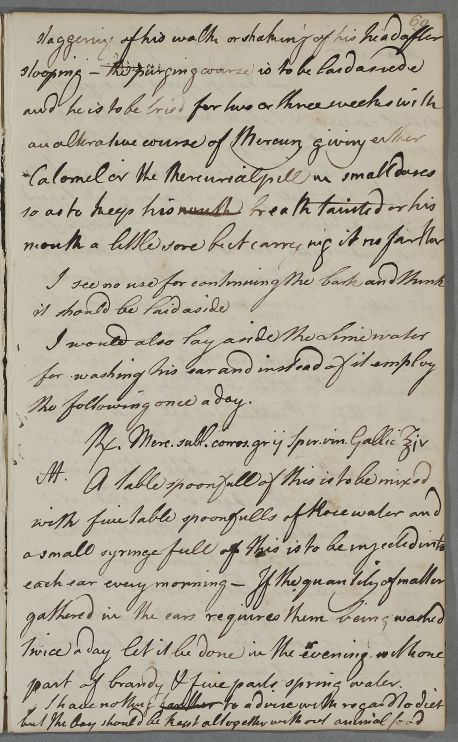 69
staggering of his walk or shaking of his head after
stooping — the purging course is to be laid assede
and he is to be tried for two or three weeks with
an alterative course of Mercury giving either
Calomel or the Mercurial pill in small doses
so as to keep his mouth breath tainted or his
mouth a little sore but carrying it no farther
I see no use for continuing the bark and think
it should be laid aside
I would also lay aside the Lime water
for washing his ear and instead of it employ
the following once a day.
Rx. Merc. subl. corros. gr ij Spir. vin. Gallic. ℥iv
M. A table spoonfull of this is to be mixed
with five table spoonfulls of Rose water and
a small syringe full of this is to be injected into
each ear every morning — If the quantity of matter
gathered in the ears requires them being washed
twice a day let it be done in the evening with one
part of brandy & five parts spring water.
I have nothing farther to advise with regard to diet
but the Boy should be kept altogether without animal food